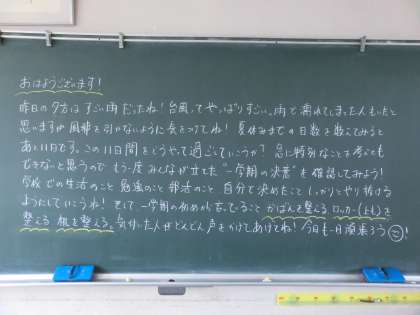 おはようございます!
昨日の夕方はすごい雨だったね!台風ってやっぱりすごい。雨で濡れてしまった人もいたと
思いますが風邪を引かないように気をつけてね!夏休みまでの日数を数えてみると
あと11日です。この11日間をどうやって過ごしていこうか?急に特別なことを考えても
できないと思うのでもう一度みんなが立てた"一学期の決意"を確認してみよう!
学校での生活のこと 勉強のこと 部活のこと 自分で決めたこと しっかりとやり抜ける
ようにしていこうね!そして一学期の初めから言っていること かばんを整える、ロッカー(上も)を
整える 机を整える。気付いた人がどんどん声をかけてあげてね!今日も一日頑張ろう!